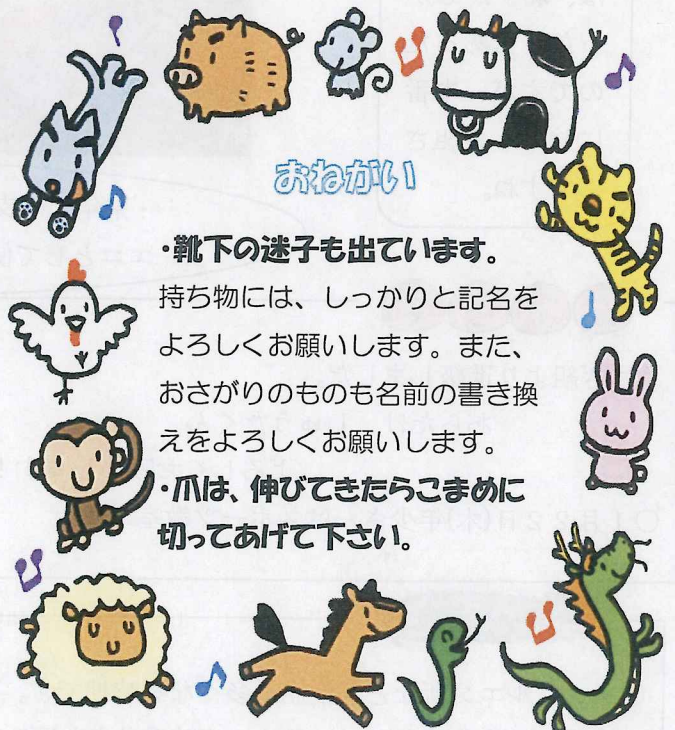 おねがい
・靴下の迷子も出ています。
持ち物には、しっかりと記名を
よろしくお願いします。また、
おさがりのものも名前の書き換
えをよろしくお願いします。
・爪は、伸びてきたらこまめに
切ってあげて下さい。